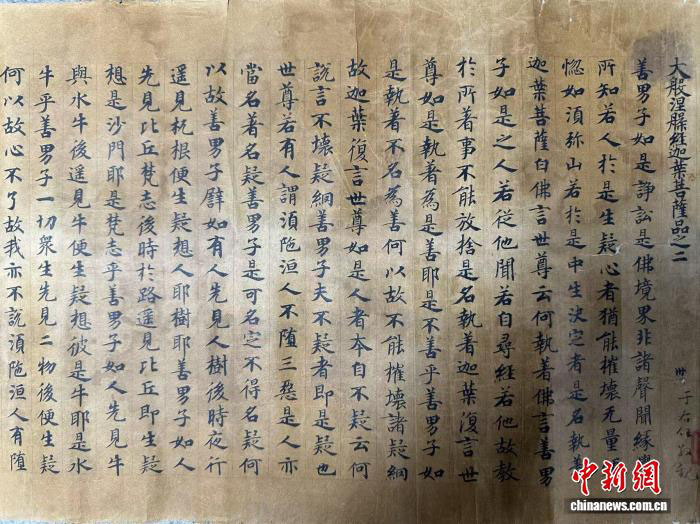 大般涅槃經迦葉菩薩品之二
卅
善男子如是諍訟是佛境界非諸聲聞緣
所知若人於是生疑心者猶能摧壞无量
惱如須弥山若於是中生決定者是名執着
迦葉菩薩白佛言世尊云何執着佛言善男
子如是之人若從他聞若自尋經若他故教
於所着事不能放捨是名執着迦葉復言世
尊如是執着為是善耶是不善乎善男子如
是執着不名為善何以故不能摧壞諸疑網
故迦葉復言世尊如是人者本自不疑云何
說言不壞疑網善男子夫不疑者即是疑也
世尊若有人謂湏陁洹人不墮三惡是人亦
當名著名疑善男子是可名定不得名疑何
以故善男子譬如有人先見人樹後時夜行
遥見杌根便生疑想人耶樹耶善男子如人
先見比丘梵志後時於路遥見比丘即生疑
想是沙門耶是梵志乎善男子如人先見牛
與水牛後遥見牛便生疑想彼是牛耶是水
牛乎善男子一切衆生先見二物後便生疑
何以故心不了故我亦不說湏陁洹人有墮
中新网
WWW.CHINANEWS.COM